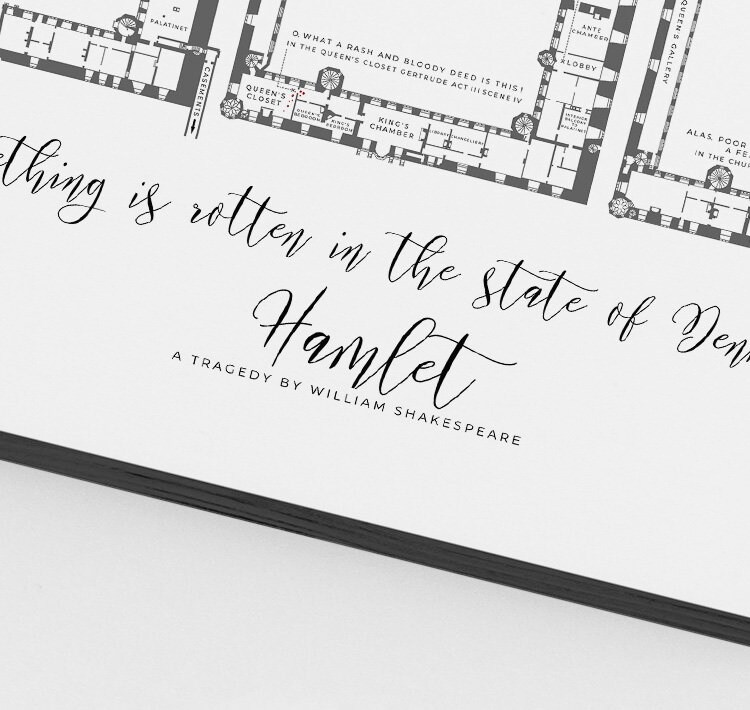 PALATINET
CASEMENTS
O, WHAT A RASH AND BLOODY DEED IS THIS!
IN THE QUEEN'S CLOSET GERTRUDE ACT III SCENE IV
QUEEN'S
CLOSET
QUEEN'S
BEDROOM
KING'S
BEDROOM
KING'S
CHAMBER
ANTE
CHAMBER
LOBBY
PALATINET
QUEEN'S GALLERY
ALAS, POOR
IN THE
thing is rotten in the state of Den
Hamlet
A TRAGEDY BY WILLIAM SHAKESPEARE